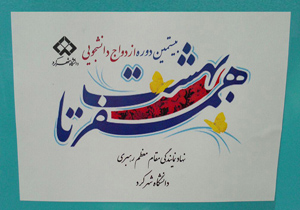 بیستمین دوره ازدواج دانشجویی
همسفر تا بهشت
نهاد نمایندگی مقام معظم رهبری
دانشگاه شهرکرد